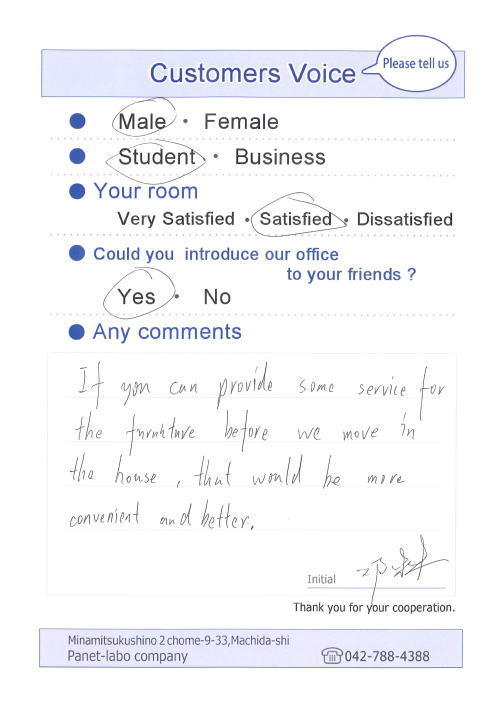 Customers Voice
Please tell us
Male・Female
Student・Business
Your room
Very Satisfied・Satisfied・Dissatisfied
Could you introduce our office
to your friends ?
Yes・No
Any comments
If you can provide some service for
the furniture before we move in
the house, that would be more
convenient and better.
Initial
Thank you for your cooperation.
Minamitsukushino 2 chome-9-33,Machida-shi
Panet-labo company
042-788-4388